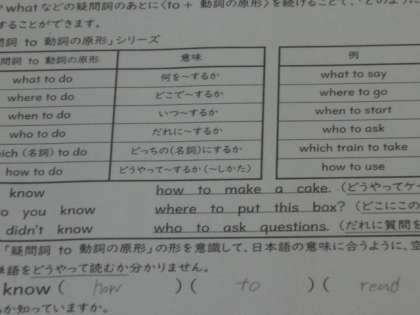 what などの疑問詞のあとに〈to + 動詞の原形〉を続けることで、
することができます。
問詞 to 動詞の原形」シリーズ
問詞 to 動詞の原形 意味 例
what to do 何を~するか what to say
where to do どこで~するか where to go
when to do いつ~するか when to start
who to do だれに~するか who to ask
(名詞) to do どっちの(名詞)にするか which train to take
how to do どうやって~するか(~しかた) how to use
know how to make a cake. (どうやってケー
you know where to put this box? (どこにこの
didn't know who to ask questions. (だれに質問を
「疑問詞 to 動詞の原形」の形を意識して、日本語の意味に合うように、空
単語をどうやって読むか分かりません。
know ( how )( to )( read
か知っていますか。